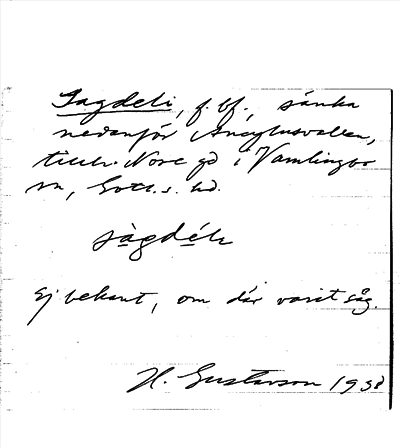 Sagdeli, f. bf., sänka
nedanför Ancylusvallen,
tillh. Nore gd i Vamlingbo
sn, Gotl. s. hd.
sàgdélɩ
Ej bekant, om där varit såg.
H. Gustavson 1938